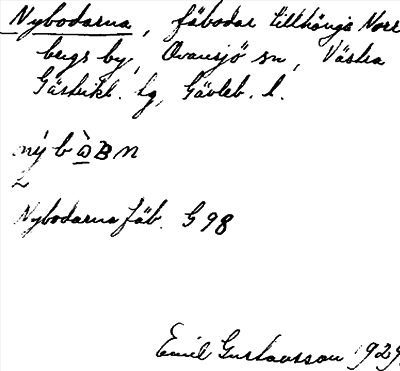 Nybodarna, fäbodar tillhöriga Norr
bergs by, Ovansjö sn, Västra
Gästrikl. tg, Gävleb. l.
Nybodarna fäb. G 98
Emil Gustavsson 1929.